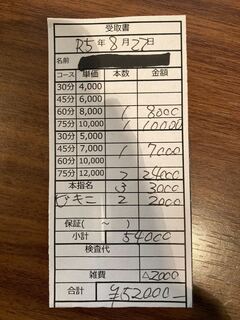 受取書
R5年8月27日
名前
コース 単価 本数 金額
30分 4,000
45分 6,000
60分 8,000 1 8000
75分 10,000 1 10000
30分 5,000
45分 7,000 1 7000
60分 10,000
75分 12,000 2 24000
本指名 3 3000
ビキニ 2 2000
保証( ~ )
小計 54000
検査代
雑費 △2000
合計 ¥52000-